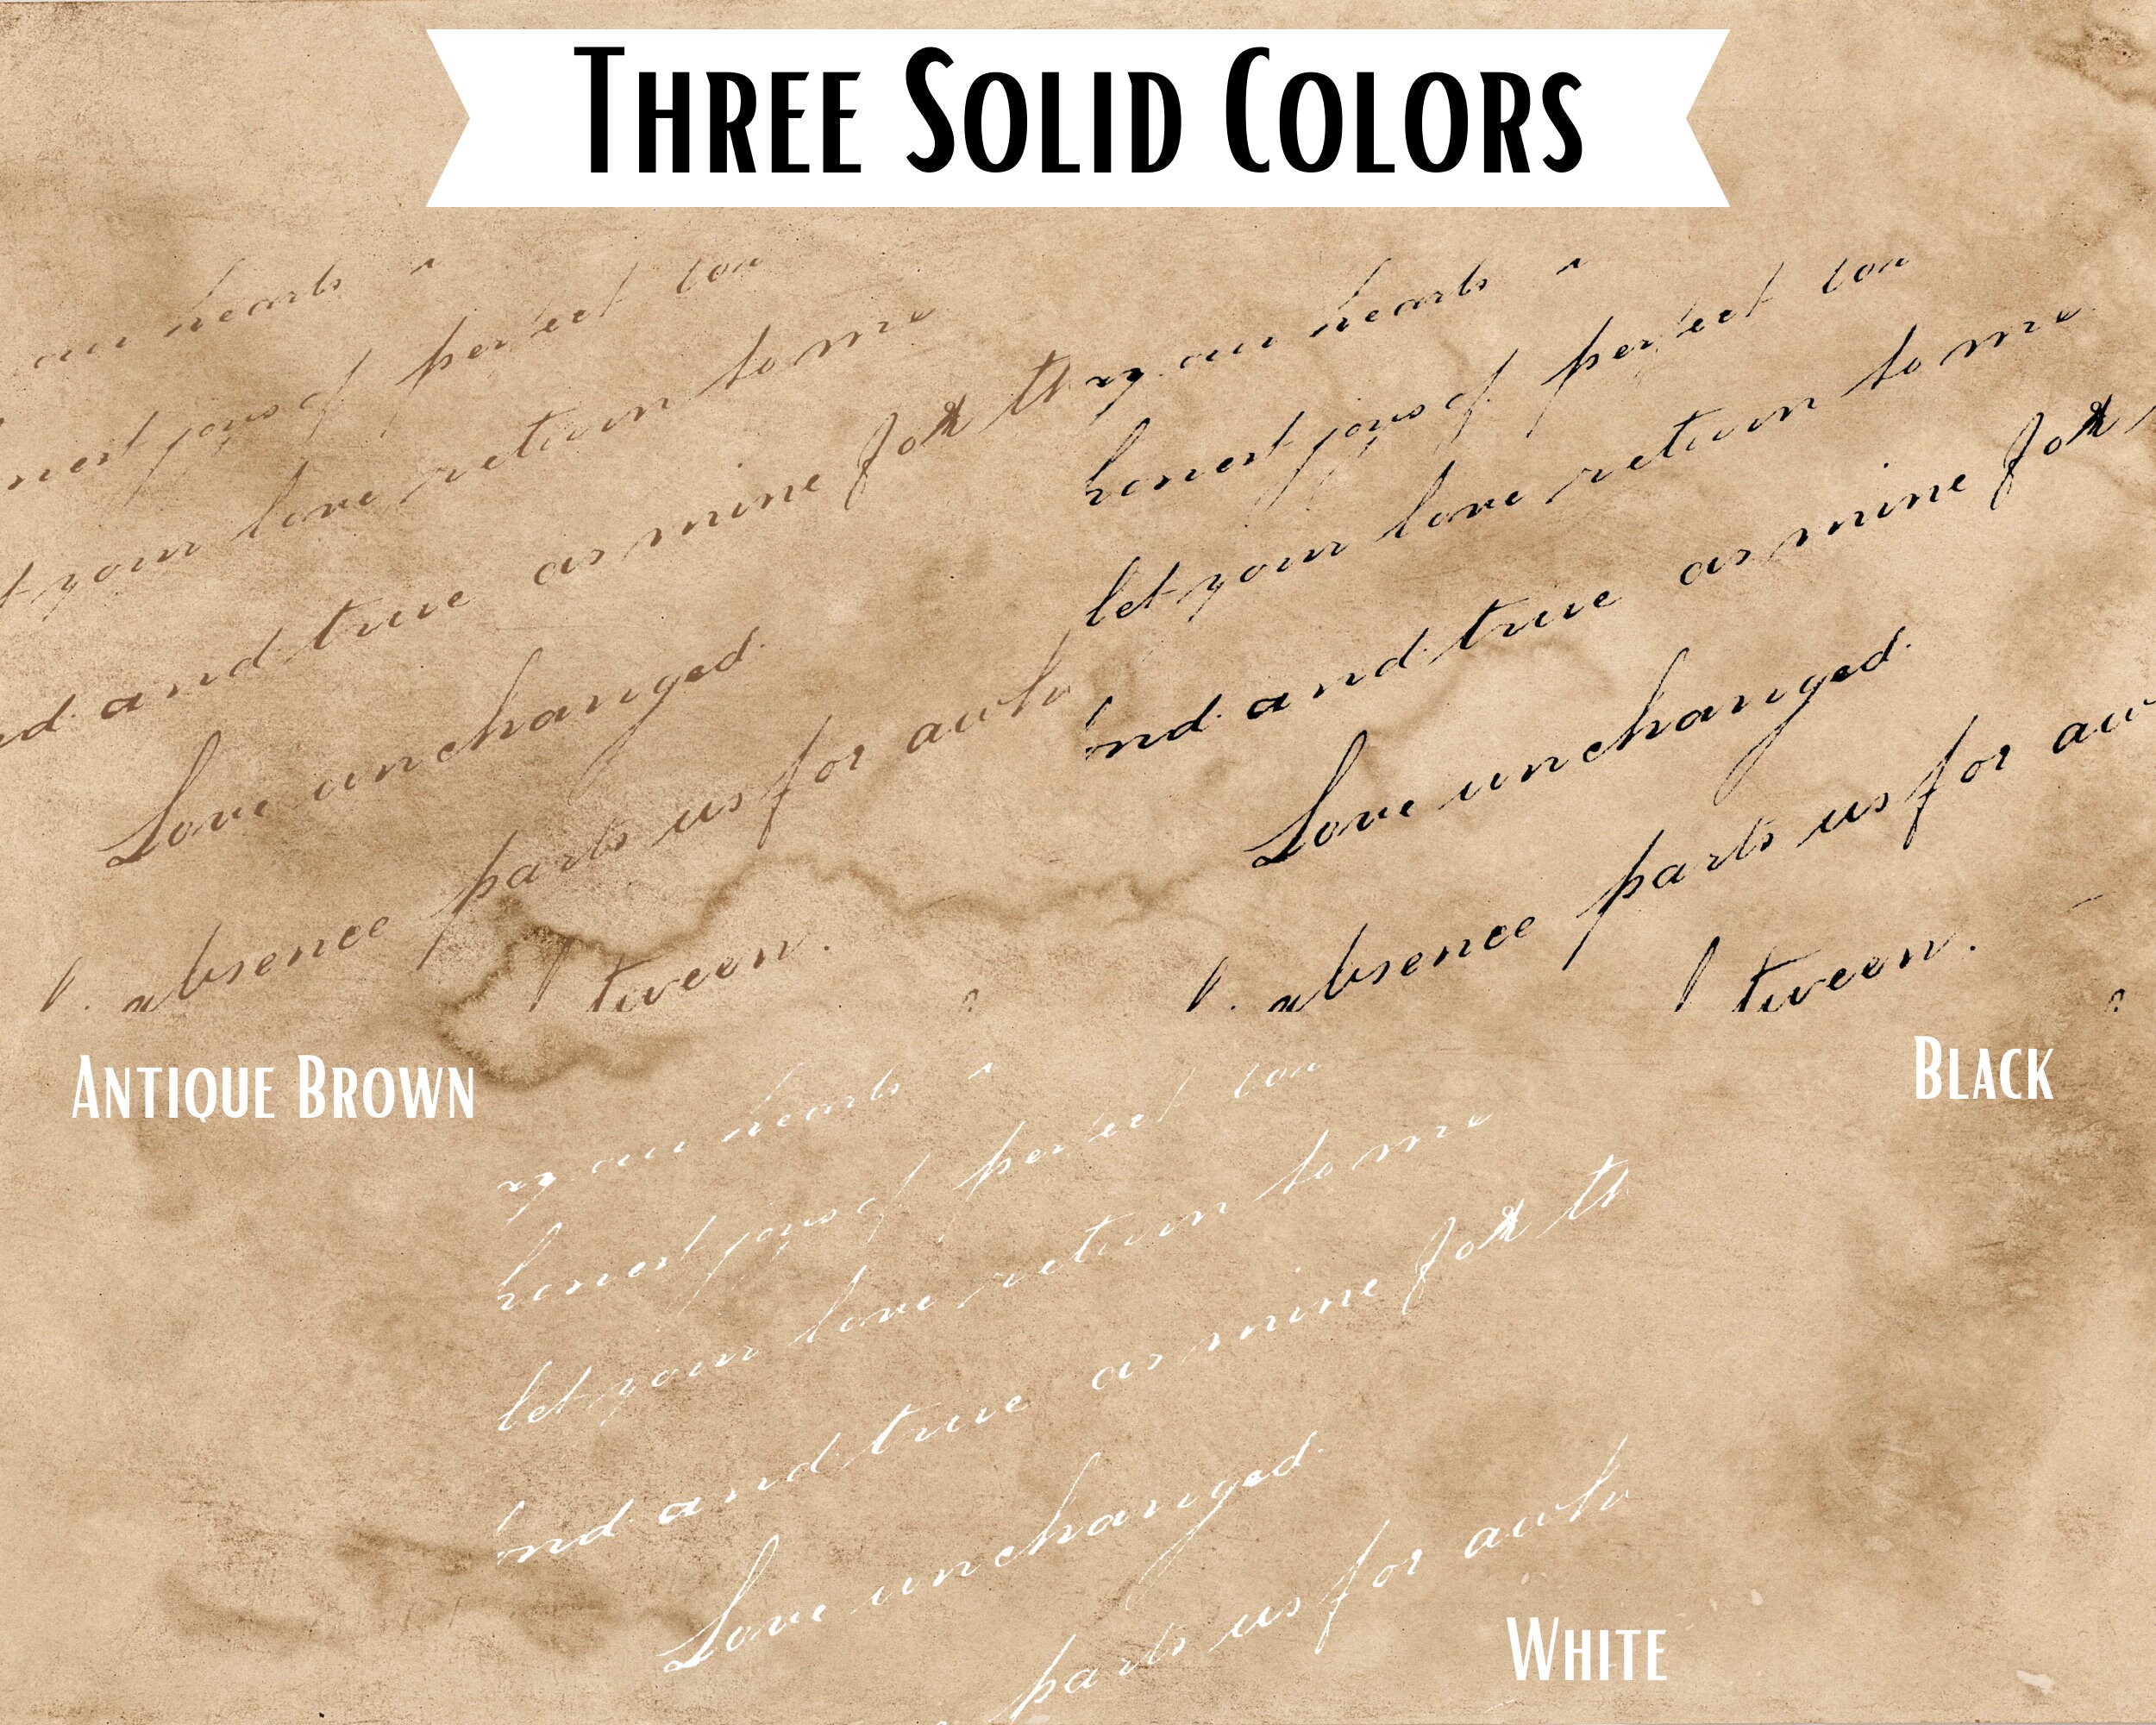 THREE SOLID COLORS
our hearts
perfect
your love return to me
and true as mine for th
Love unchanged.
absence parts us for awh
tween.
ANTIQUE BROWN
our hearts
honest joys of perfect
let your love return to me
and true as mine for
Love unchanged.
absence parts us for aw
tween.
BLACK
our hearts
honest joys of perfect
let your love return to me
and true as mine for th
Love unchanged.
parts us for awh
WHITE